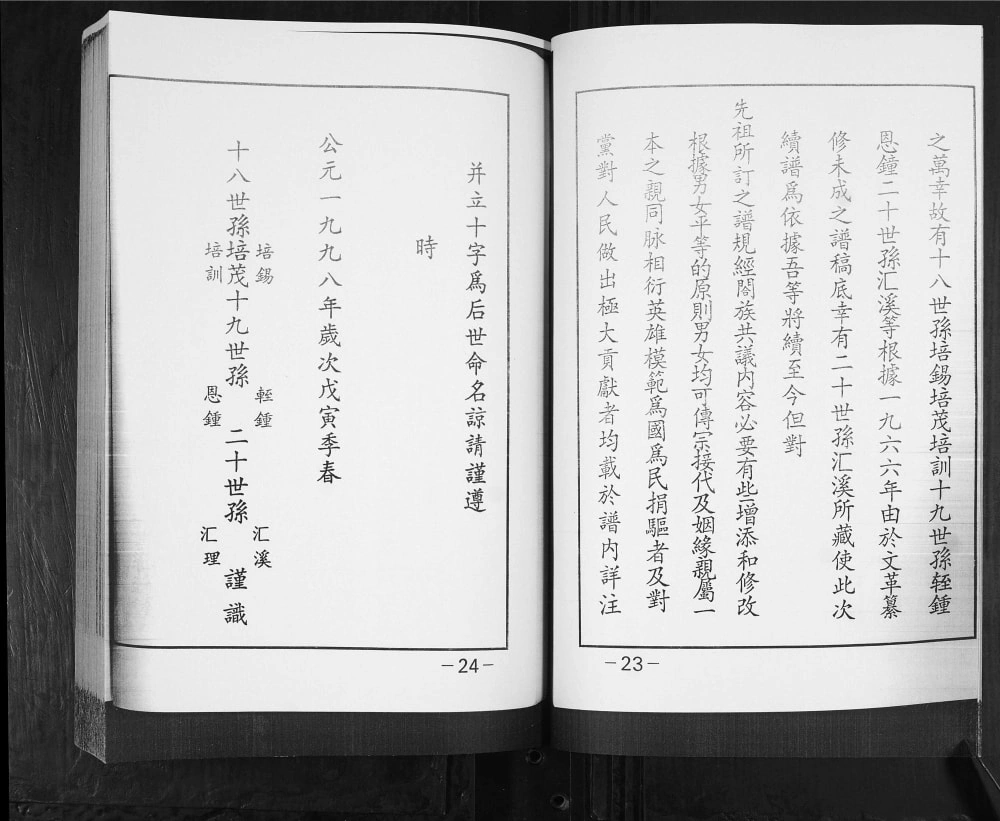 之萬幸故有十八世孫培錫培茂培訓十九世孫輊鍾
恩鐘二十世孫汇溪等根據一九六六年由於文革纂
修未成之譜稿底幸有二十世孫汇溪所藏使此次
續譜爲依據吾等將續至今但對
先祖所訂之譜規經閤族共議内容必要有些增添和修改
根據男女平等的原則男女均可傳宗接代及姻緣親屬一
本之親同脉相衍英雄模範爲國爲民捐驅者及對
黨對人民做出極大貢獻者均載於譜内詳注
－23－
并立十字爲后世命名諒請謹遵
時
公元一九九八年歲次戊寅季春
培錫 輊鍾 汇溪
十八世孫培茂十九世孫 二十世孫 謹識
培訓 恩鍾 汇理
－24－